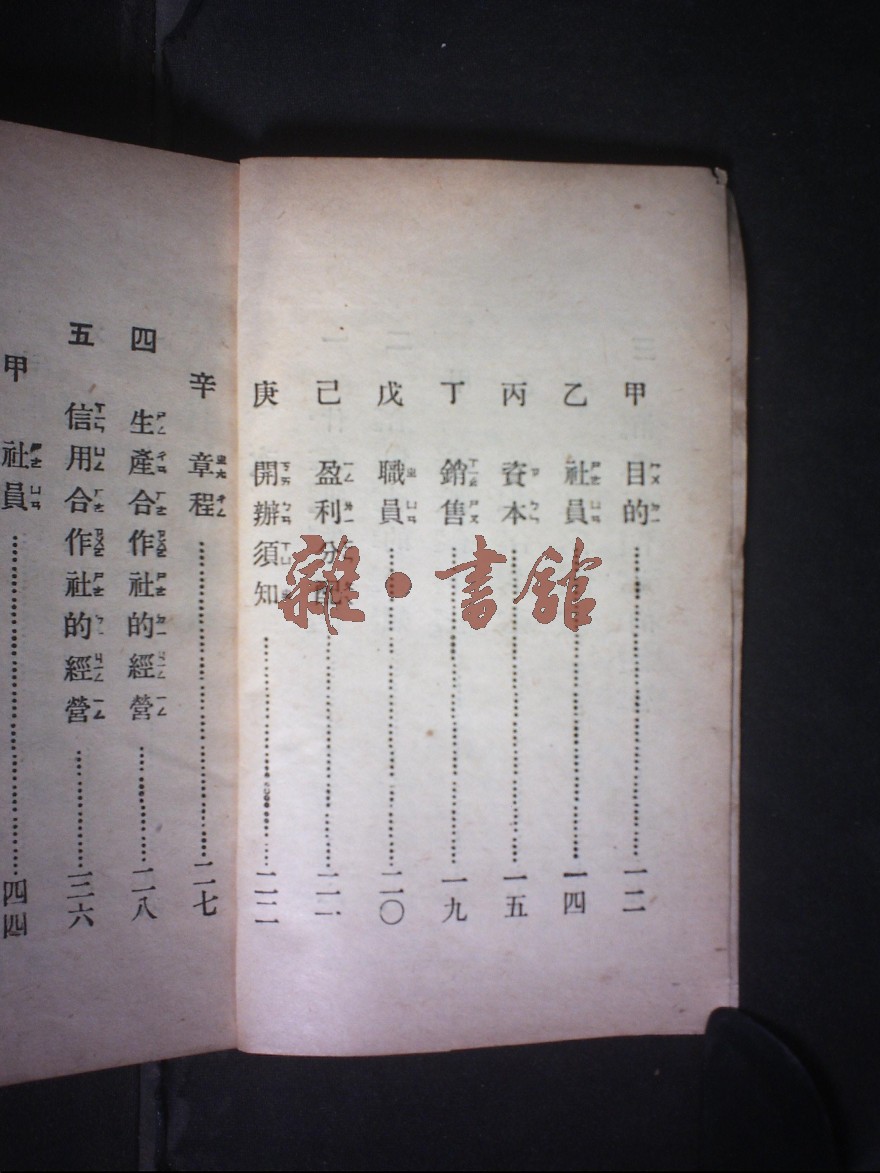 甲 目的……一二
乙 社員……一四
丙 資本……一五
丁 銷售……一九
戊 職員……二〇
己 盈利分配……二一
庚 開辦須知……二二
辛 章程……二七
四 生產合作社的經營……二八
五 信用合作社的經營……三六
甲 社員……四四
雜·書館